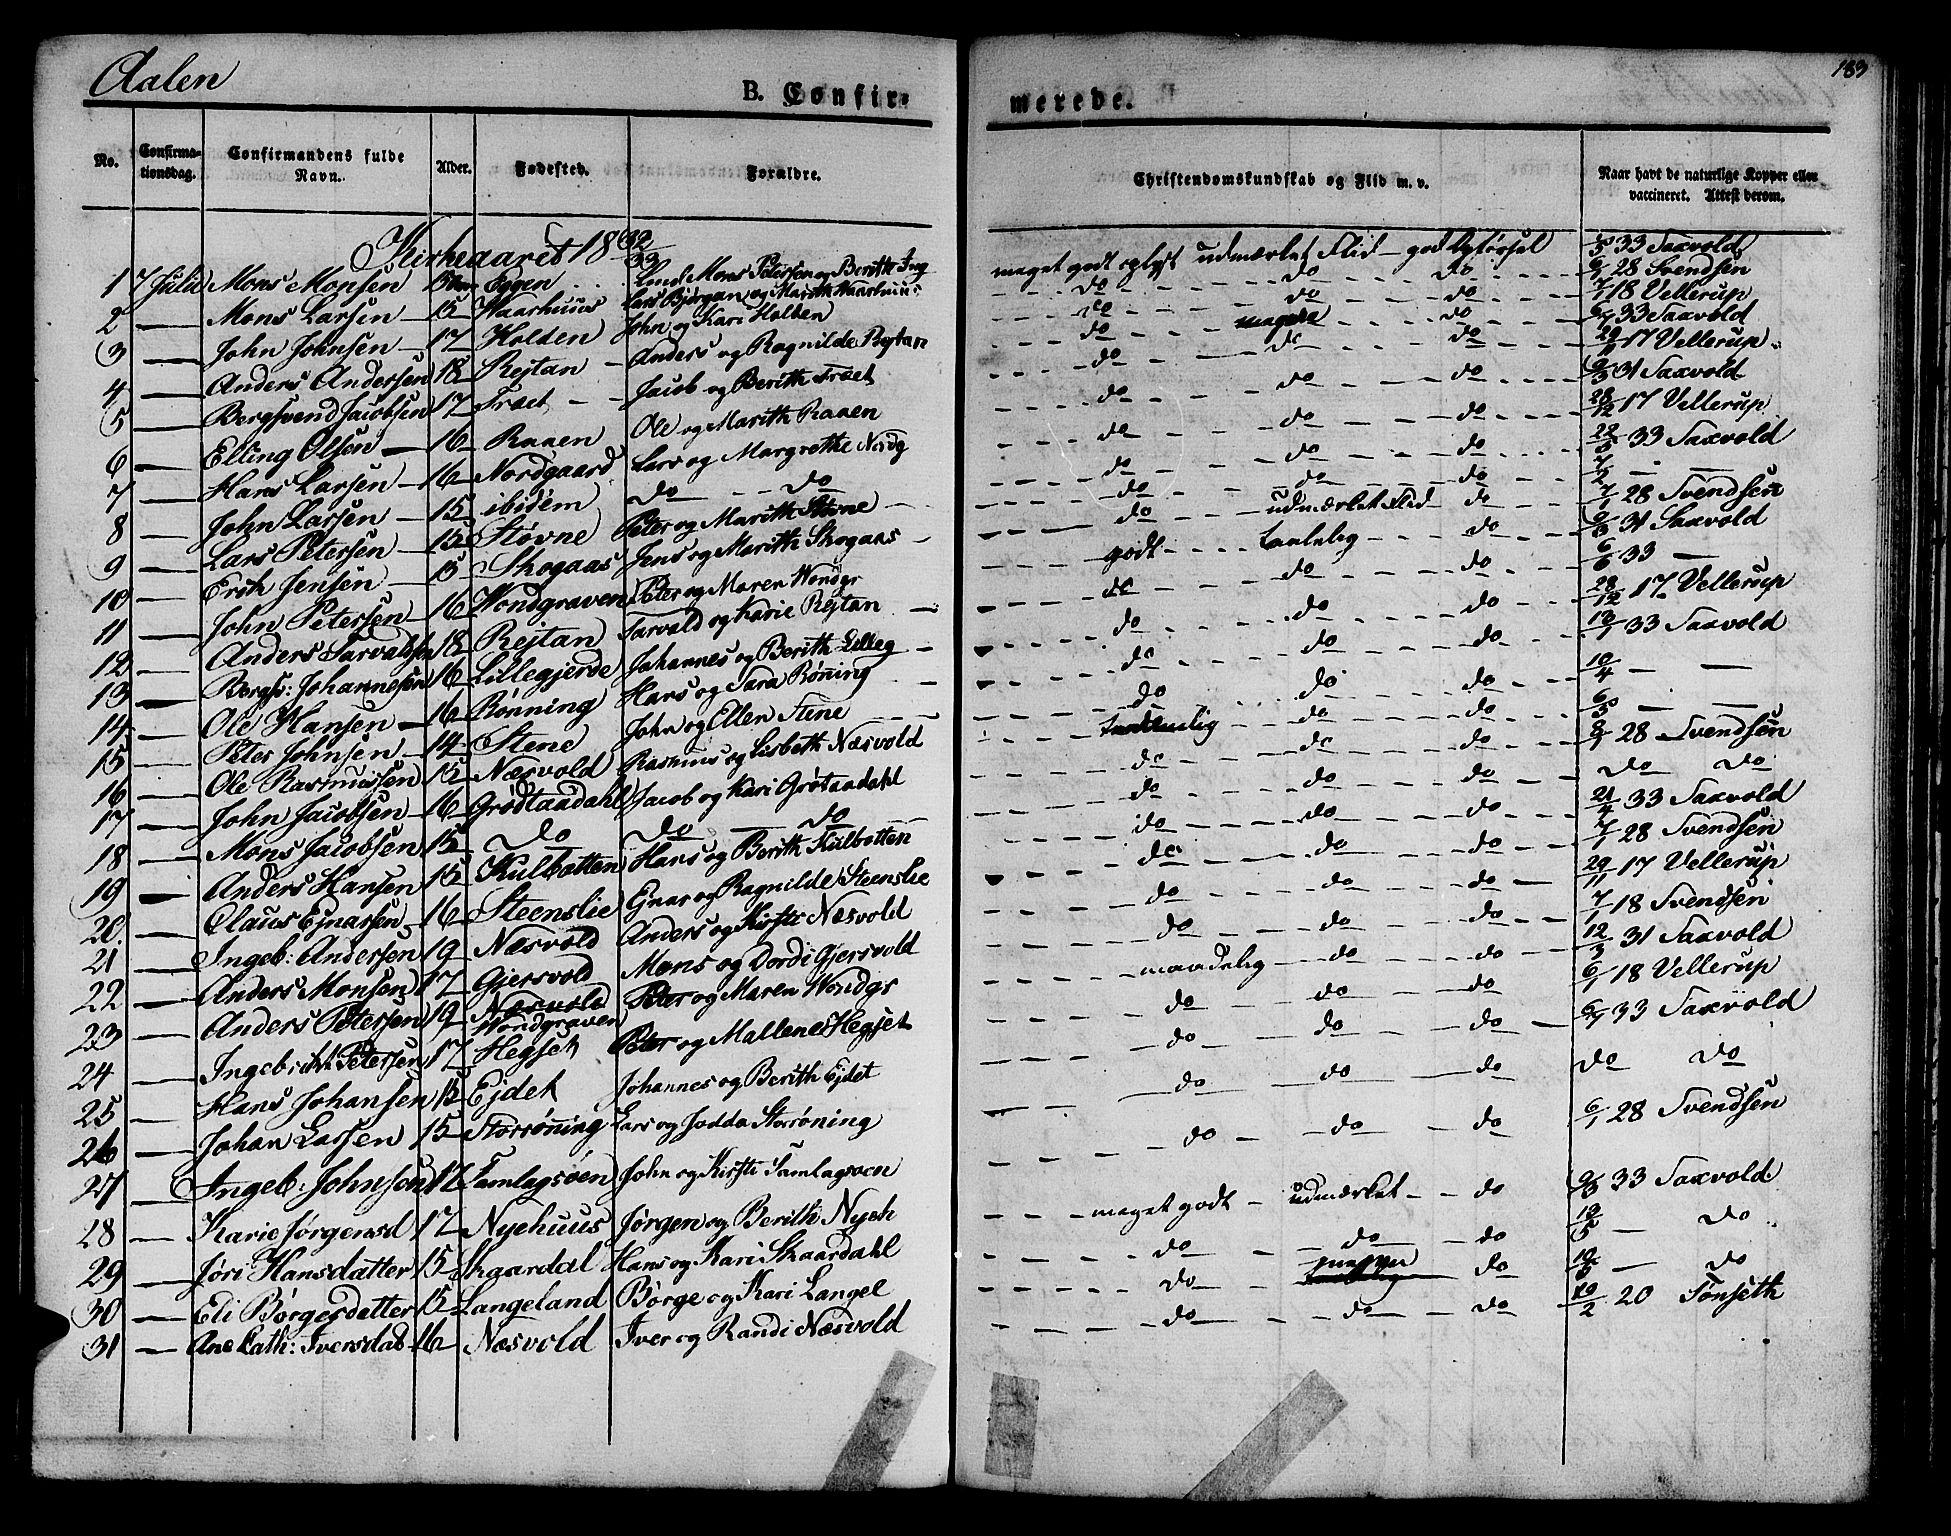 Aalen
B. Confir-
merede.
183
No.
Confirma-
tionsdag.
Confirmandens fulde
Navn.
Alder.
Fødested.
Forældre.
Christendomskundskab og Flid m. v.
Naar havt de naturlige Kopper eller
vaccineret. Attest derom.
Kirkeaaret 18 32/33
1 7 Julii Mons Monsen 15 Eggen Mons Peterson og Berith meget godt oplyst udmærket Flid - god Opførsel 33 Saxvold
2 — Mons Larsen — 15 Waarhuus Lars Bjørgan og Marith Waarhuus do do do 28 Svendsen
3 — John Johnsen — 17 Holden John og Kari Holden do do do 7/1 18 Vellerup
4 — Anders Andersen 18 Rejtan — Anders og Ragnilde Rejtan do do 33 Saxvold
5 — Bergsvend Jacobsen 17 Træet - - Jacob og Berith Træet do do do 17 Vellerup
6 — Elling Olsen — 16 Raaen Ole og Marith Raaen do do do 31 Saxvold
7 — Hans Larsen — 16 Nordgaard Lars og Margrethe Nordg do do do 28/12 17 Vellerup
8 — John Larsen — 15 ibidem do - - do do do do 33 Saxvold
9 — Lars Petersen — 15 Støvne Peter og Marith Støvne do do do — —
10 — Erik Jensen — 15 Skogaas Jens og Marith Skogaas do udmærket Flid do 7/1 28 Svendsen
11 — John Petersen — 16 Wondgraven Peter og Maren Wondgr godt taalelig do 31 Saxvold
12 — Anders Tarvaldsen 18 Rejtan Tarvald og Karie Rejtan do do do 6/6 33 —
13 — Bergsv: Johannesen 16 Lillegjerde Johannes og Berith Lilleg do do do 28/12 17 Vellerup
14 — Ole Hansen — 16 Rønning Hans og Sara Røning do do do 33 Saxvold
15 — Peter Johnsen — 14 Stene John og Ellen Stene do do do 10/4 — —
16 — Ole Rasmussen 15 Næsvold Rasmus og Lisbeth Næsvold do do 6/5 — —
17 — John Jacobsen — 16 Grødtaadahl Jacob og Kari Grøtaadahl do do do 28 Svendsen
18 — Mons Jacobsen 15 do do — do do do do do do
19 — Anders Hansen 15 Kulbotten Hans og Berith Kulbotten do do do 33 Saxvold
20 — Claus Ejnarsen 16 Steenslie Ejnar og Ragnilde Steenslie do do do 7/1 28 Svendsen
21 — Ingeb: Andersen 19 Næsvold Anders og Kirsti Næsvold do do do 29/11 17 Vellerup
22 — Anders Monsen 17 Gjersvold Mons og Dordi Gjersvold do do do 7/1 18 Svendsen
23 — Anders Petersen 19 Wondgraven Peter og Maren Wondgr maadelig do do 12/3 31 Saxvold
24 — Petersen 17 Hegset Peter og Mallene Hegset do do do 6/1 18 Vellerup
25 — Hans Johansen Ejdet Johannes og Berith Ejdet do do do 33 Saxvold
26 — Johan Larsen 15 Storrøning Lars og Jodda Storrøning do do do do do
27 — Ingeb: Johnsen 17 Tamlagsøen John og Kirsti Tamlagsøen do do do 6/1 28 Svendsen
28 — Karie Jørgensd 17 Nyehuus Jørgen og Berith Nyeh meget godt udmærket do 33 Saxvold
29 — Jøri Hansdatter 15 Skaardal Hans og Kari Skaardahl do do do 12/5 — do
30 — Eli Børgesdatter 15 Langeland Børge og Kari Langel do do — do
31 — Ane Cath: Iversdat 16 Næsvold Iver og Randi Næsvold do do do 20 Tønseth